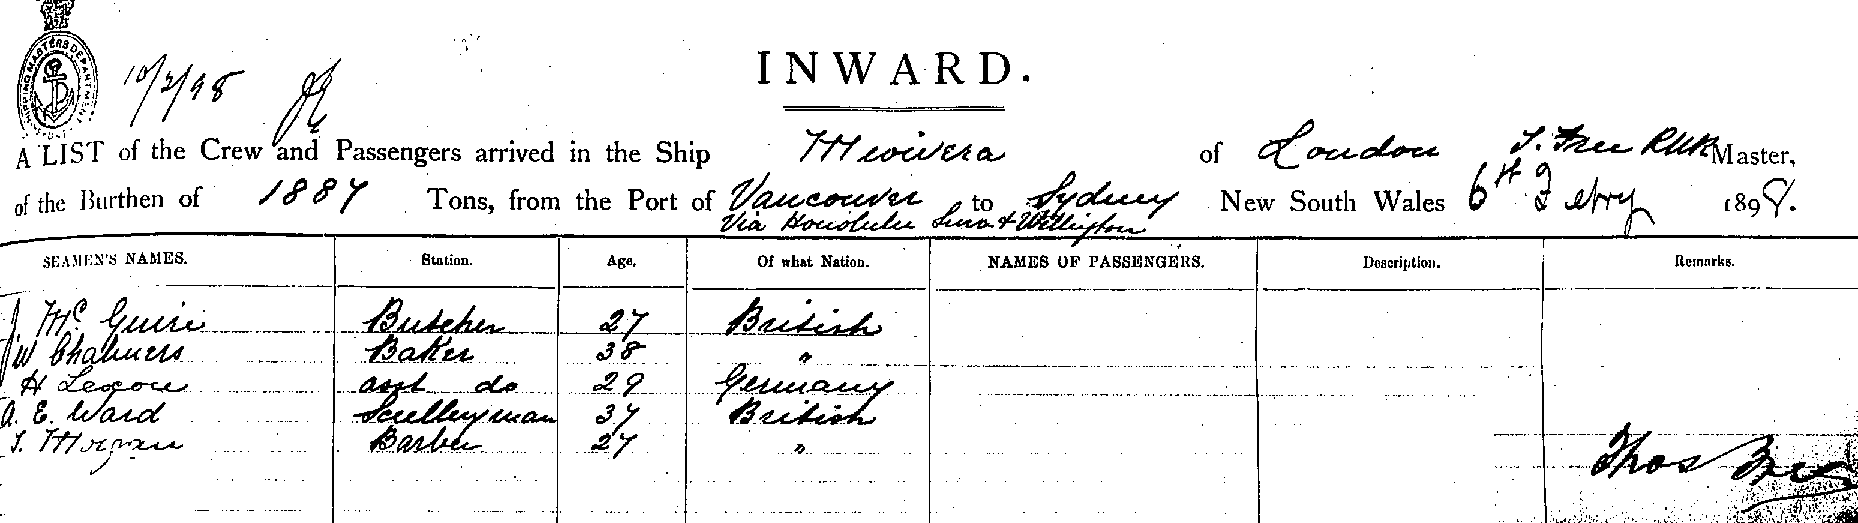 SHIPPING MASTERS DEPARTMENT
10/2/98
INWARD.
A LIST of the Crew and Passengers arrived in the Ship Miowera of London T. Free RNR Master,
of the Burthen of 1887 Tons, from the Port of Vancouver to Sydney New South Wales 6th Febry 1898.
Via Honolulu Suva & Wellington
SEAMEN'S NAMES. Station. Age. Of what Nation. NAMES OF PASSENGERS. Description. Remarks.
J. Mc Guire Butcher 27 British
JW Chalmers Baker 38 "
H asst do 29 Germany
A. E. Ward Sculleryman 37 British
T. Morgan Barber 27 "
Thos Free